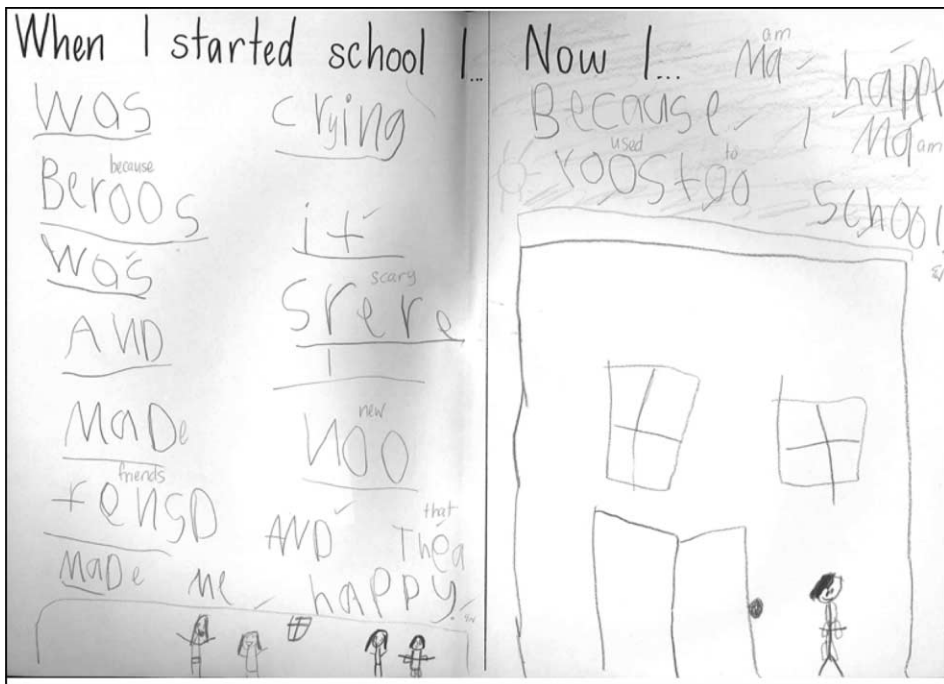 When I started school I...
was crying
because
Beroos it
was scary
srere
AND I
new
MaDe Noo
friends
fensD AND that
Thea
MaDe Me happy.
Now I... am
Ma happy
Because I Ma am
used to
roostoo School!